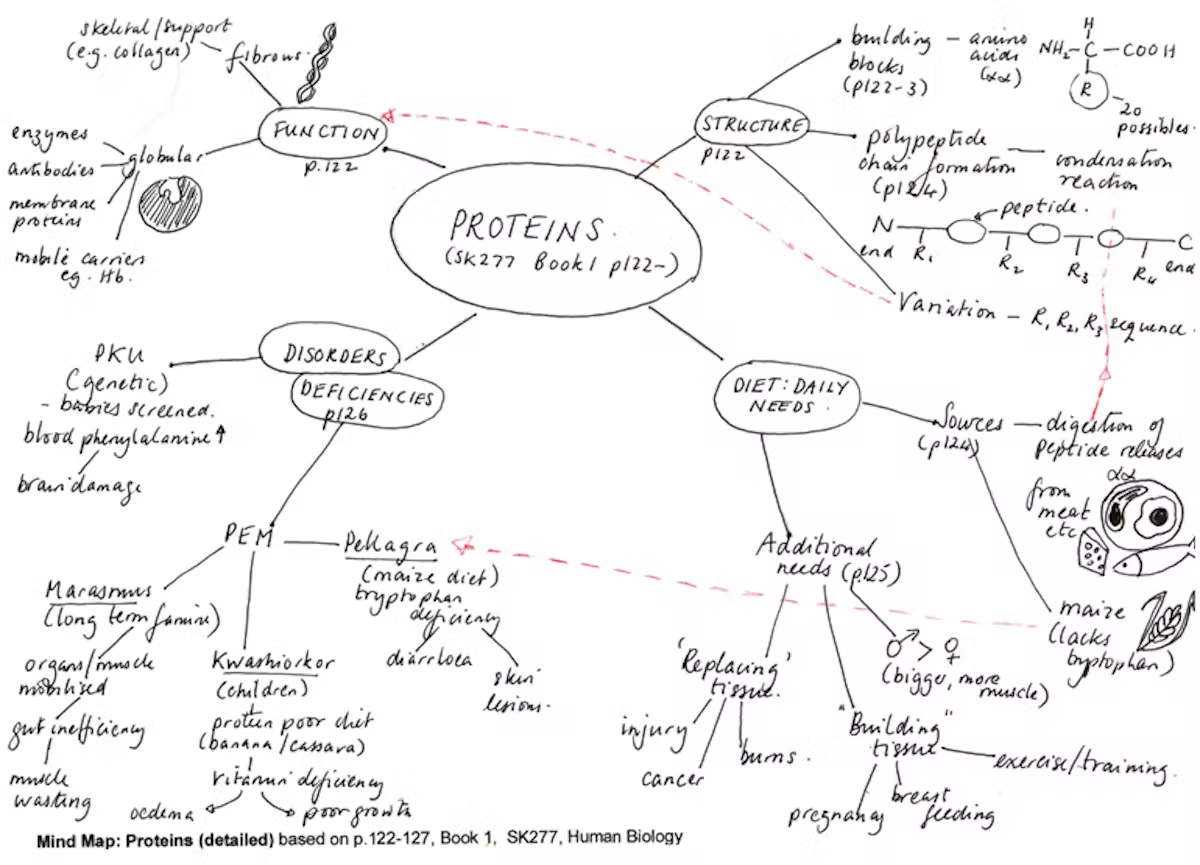 PROTEINS.
(SK277 Book 1 p122-)
FUNCTION
p.122
fibrous
skeletal/support
(e.g. collagen)
globular
enzymes
antibodies
membrane
proteins
mobile carriers
eg. Hb.
STRUCTURE
p122
building
blocks
(p122-3)
amino
acids
(αα)
H
NH2-C-COOH
R
20
possibles.
polypeptide
chain formation
(p124)
condensation
reaction
peptide.
N
end
R1
R2
R3
R4
C
end
Variation - R1 R2, R3 sequence.
DISORDERS
DEFICIENCIES
p126
PKU
(genetic)
- babies screened.
blood phenylalanine ↑
brain damage
PEM
Marasmus
(long term famine)
organs/muscle
mobilised
gut inefficiency
muscle
wasting
Kwashiorkor
(children)
protein poor diet
(banana/cassava)
vitamin deficiency
oedema
poor growth
Pellagra
(maize diet)
tryptophan
deficiency
diarrhoea
skin
lesions.
DIET: DAILY
NEEDS.
Sources
(p124)
digestion of
peptide releases
αα
from
meat
etc
maize
(lacks
tryptophan)
Additional
needs (p125)
♂ > ♀
(bigger, more
muscle)
'Replacing'
tissue.
injury
cancer
burns.
"Building"
tissue
exercise/training.
breast
feeding
pregnancy
Mind Map: Proteins (detailed) based on p.122-127, Book 1, SK277, Human Biology